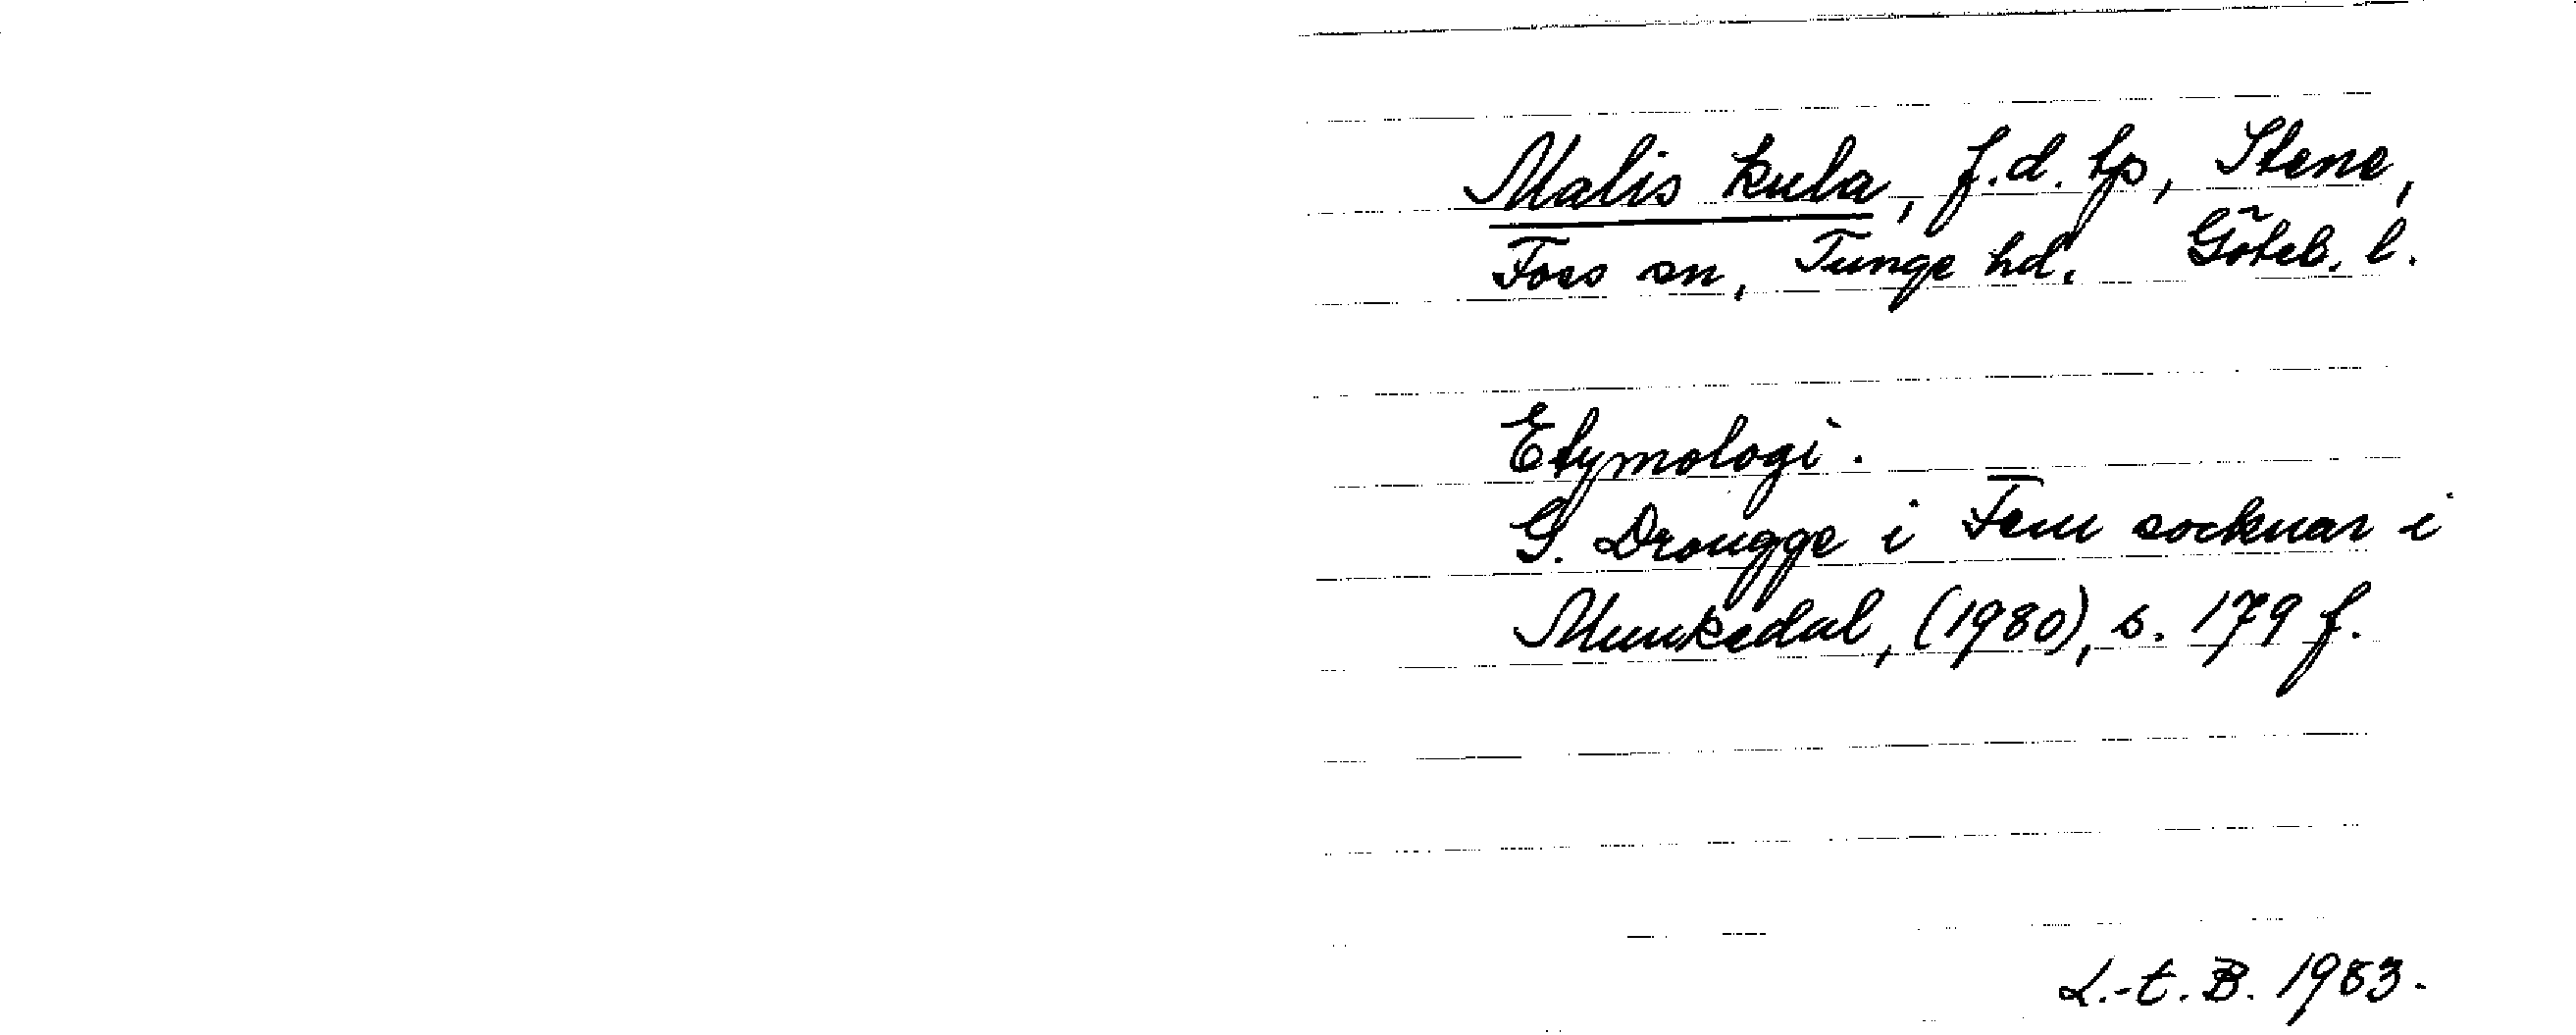 Malis kula, f.d. tp, Stene,
Foss sn, Tunge hd. Göteb. l.
Etymologi.
G. Drougge i Fem socknar i
Munkedal, (1980), s. 179 f.
L.-E. B. 1983.